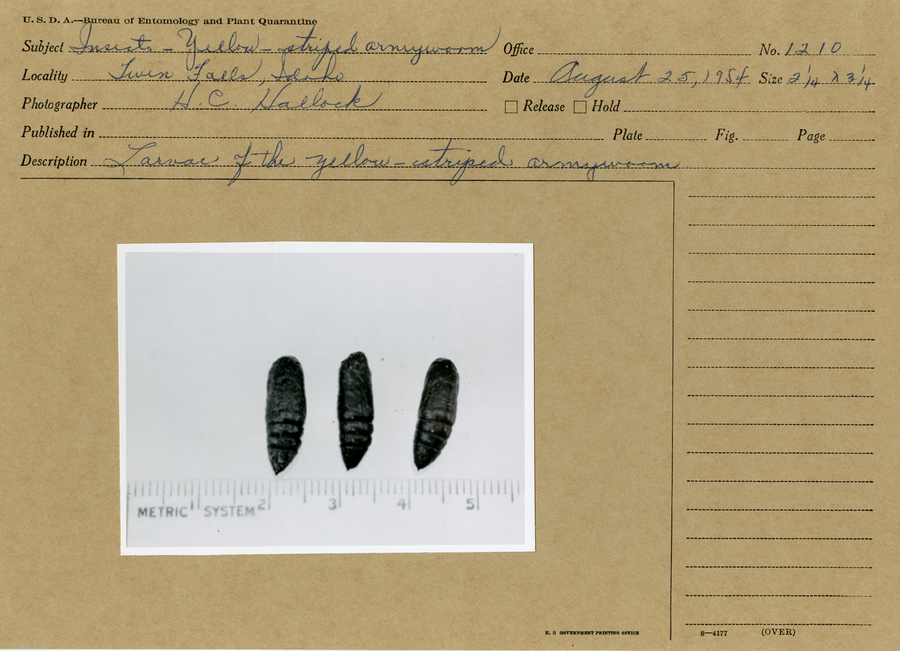 U. S. D. A.—Bureau of Entomology and Plant Quarantine
Subject Insects - Yellow-striped armyworm Office No. 1210
Locality Twin Falls, Idaho Date August 25, 1954 Size 2 1/4 x 3 1/4
Photographer H. C. Hallock Release Hold
Published in Plate Fig. Page
Description Larvae of the yellow-striped armyworm
1 2 3 4 5
METRIC SYSTEM
U. S. GOVERNMENT PRINTING OFFICE
8—4177 (OVER)